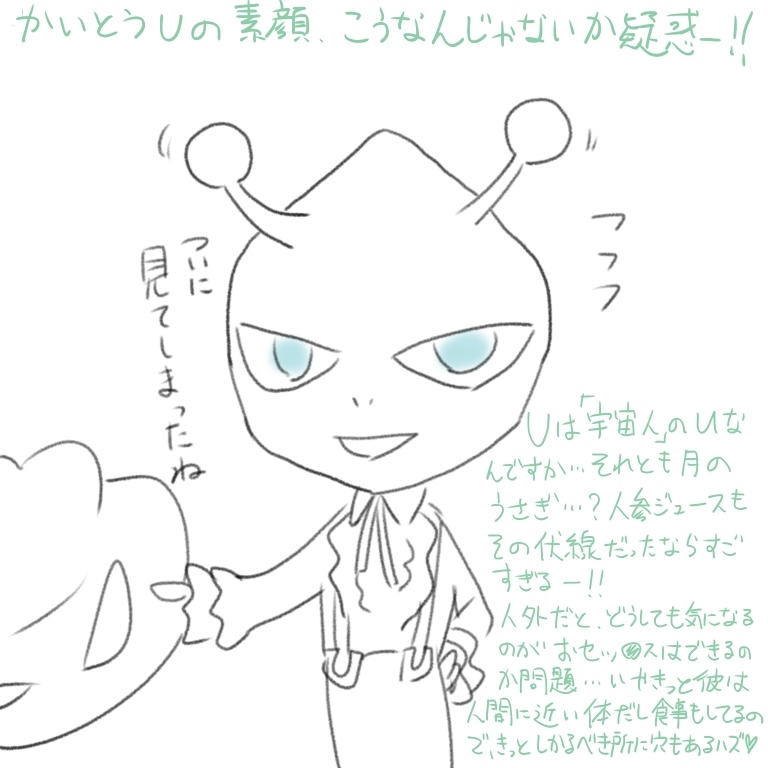 かいとうUの素顔、こうなんじゃないか疑惑ー!!
フフフ
ついに
見てしまったね
Uは「宇宙人」のUな
んですか…それとも月の
うさぎ…?人参ジュースも
その伏線だったならすご
すぎるー!!
人外だと、どうしても気になる
のがおセッ●スはできるの
か問題…いやきっと彼は
人間に近い体だし食事もしてるの
で、きっとしかるべき所に穴もあるハズ♥